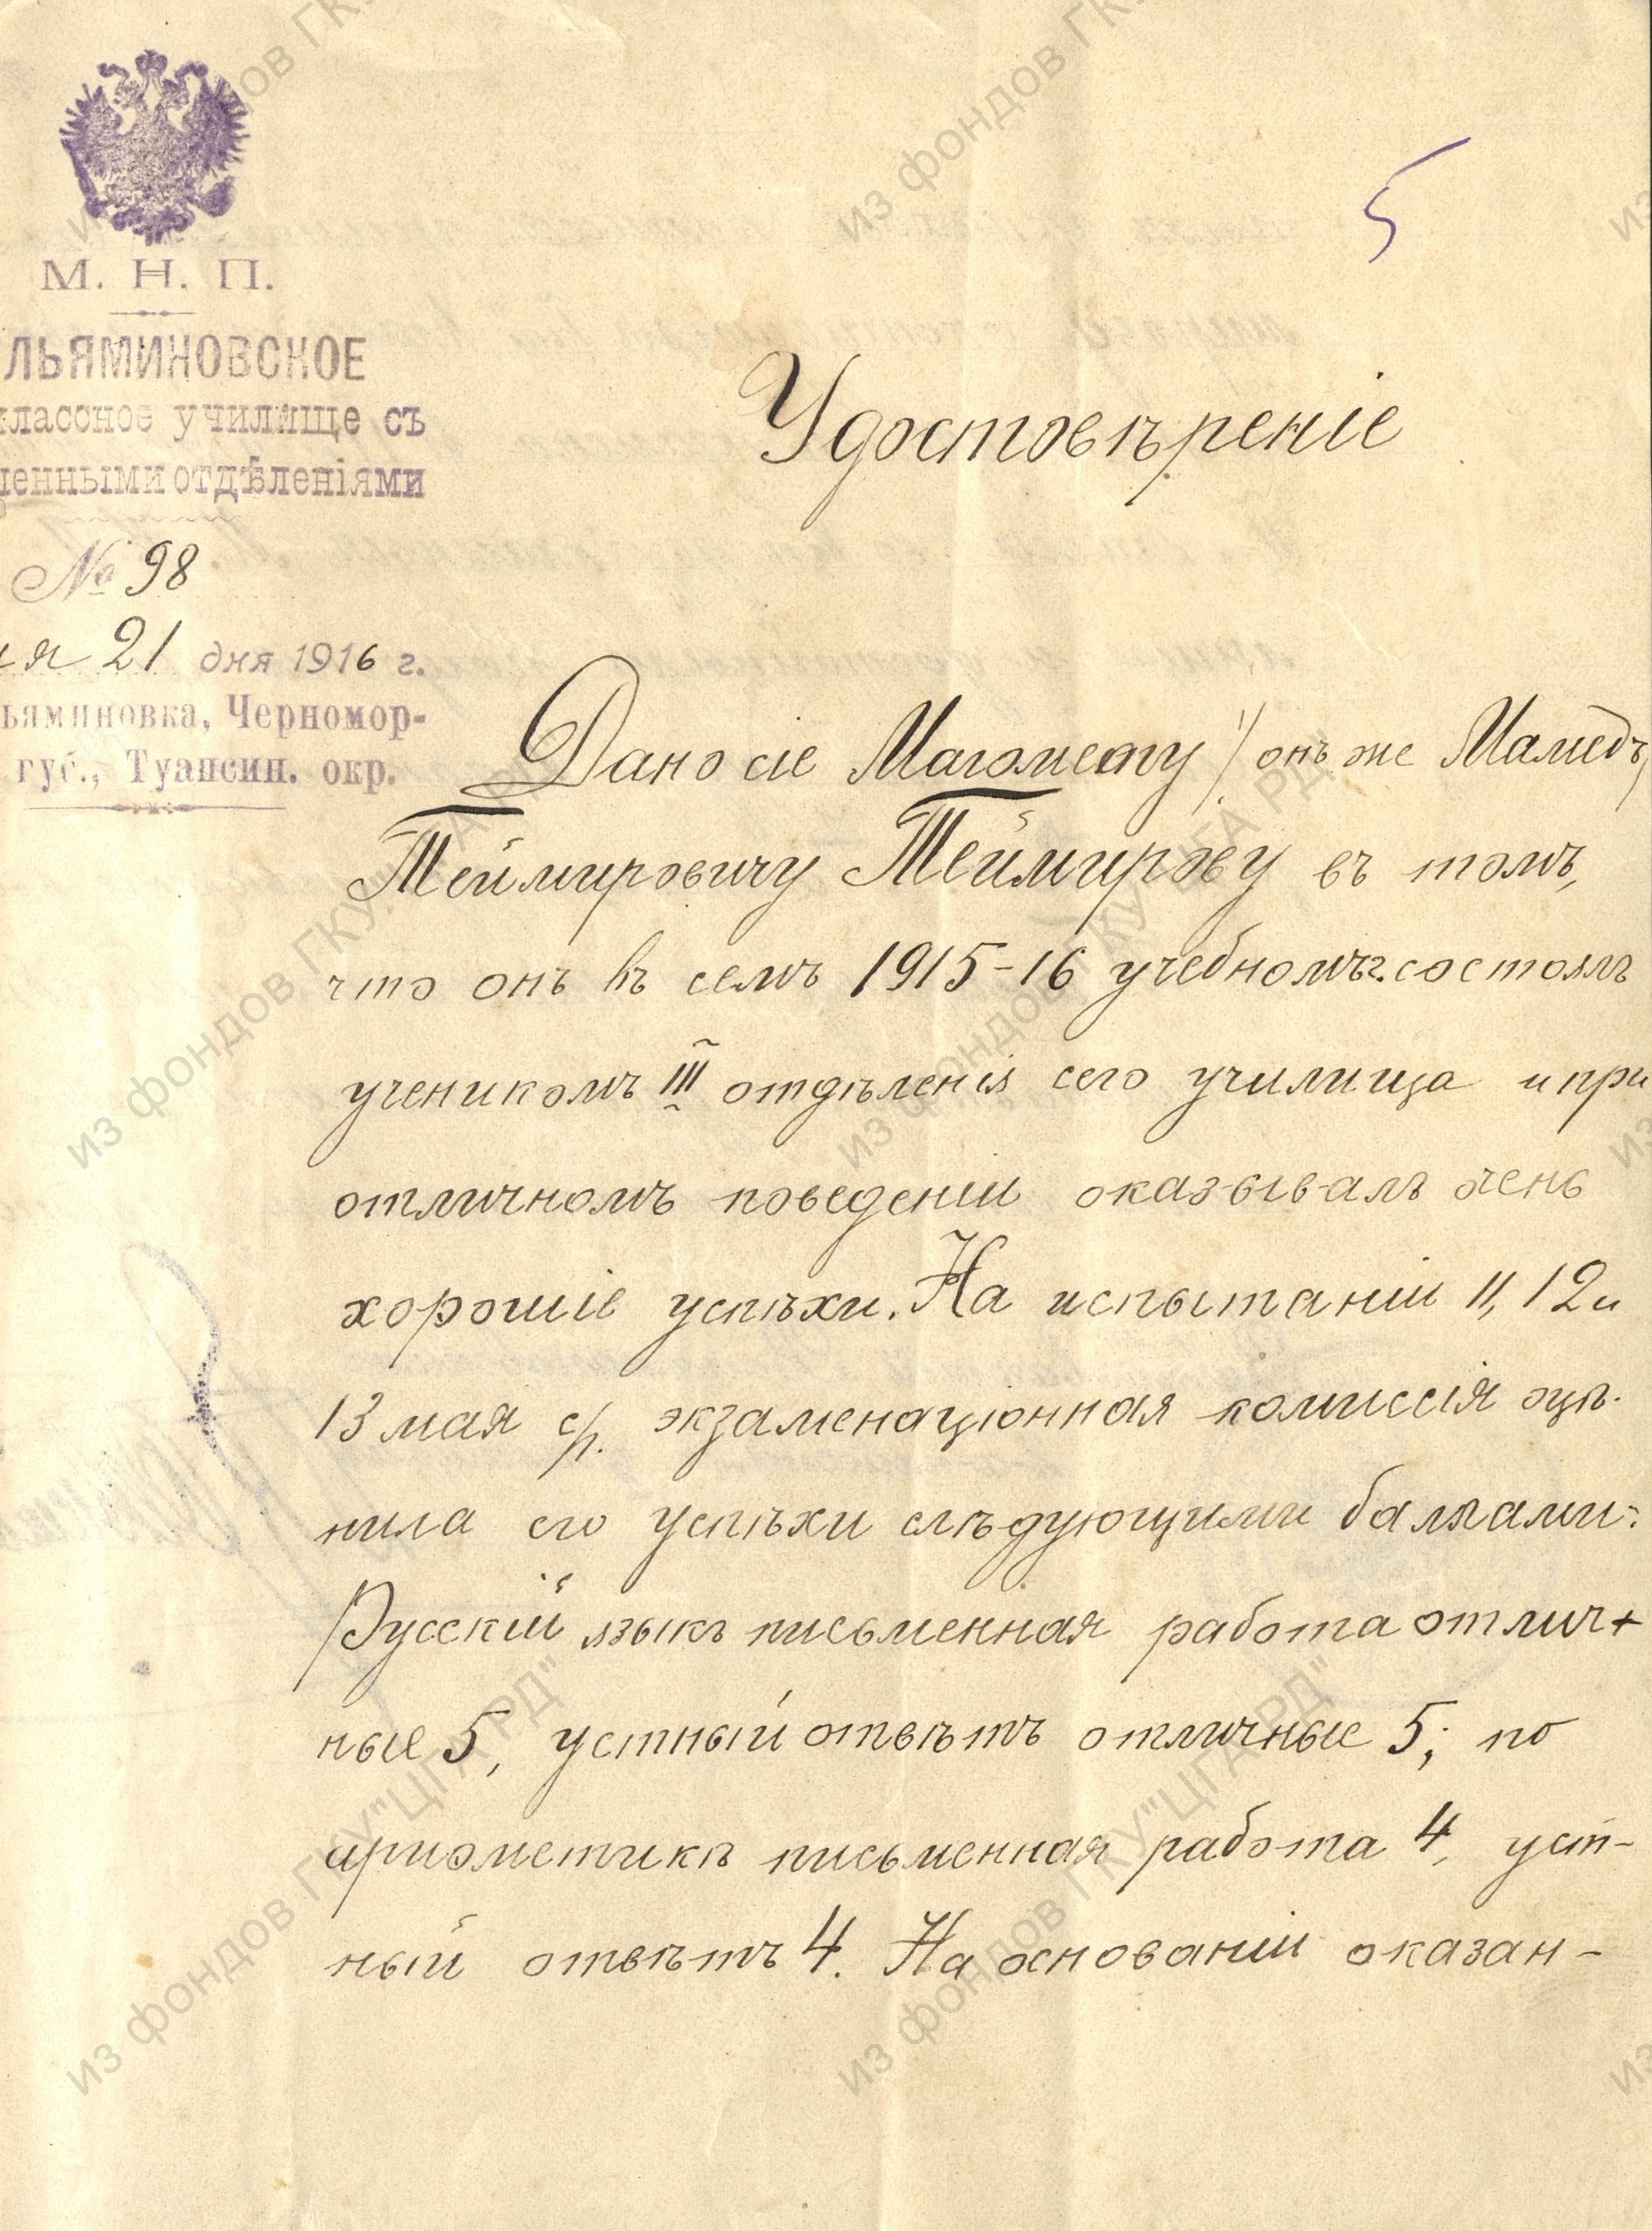 5
М. Н. П.
ЛЬЯМИНОВСКОЕ
классное училище съ
ценными отдѣленіями
№ 98
ня 21 дня 1916 г.
ьяминовка, Черномор-
губ., Туапсин. окр.
Удостовѣреніе
Дано сіе Магомету /онъ же Мамедъ/
Теймировичу Теймирову въ томъ,
что онъ въ семъ 1915-16 учебномъ г. состоялъ
ученикомъ III отдѣленія сего училища и при
отличномъ поведеніи оказывалъ очень
хорошіе успѣхи. На испытаніи 11, 12 и
13 мая с/г. экзаменаціонная комиссія оцѣ-
нила его успѣхи слѣдующими баллами:
Русскій языкъ письменная работа отлич-
ные 5, устный отвѣтъ отличные 5; по
ариѳметикѣ письменная работа 4, уст-
ный отвѣтъ 4. На основаніи оказан-
из фондов ГКУ "ЦГА РД"